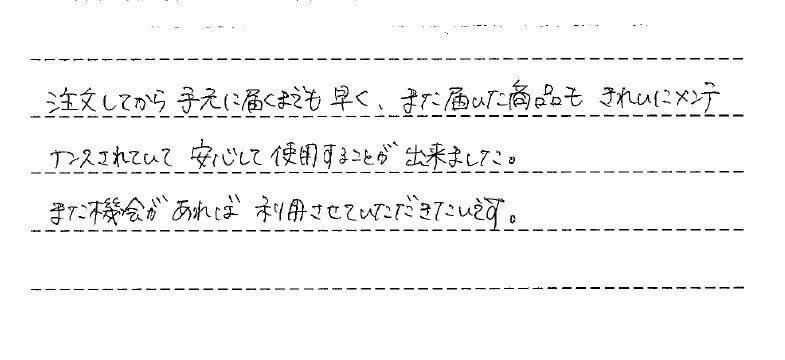 注文してから手元に届くまでも早く、また届いた商品もきれいにメンテ
ナンスされていて安心して使用することが出来ました。
また機会があれば利用させていただきたいです。